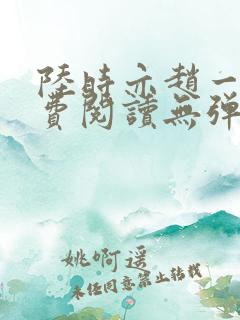 陸時亦趙一
費閱讀無彈
姚啊遥
未经同意禁止转载